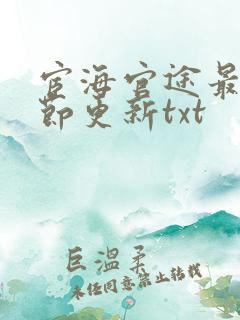 宦海官途最
节更新txt
巨温柔
未经同意禁止转载